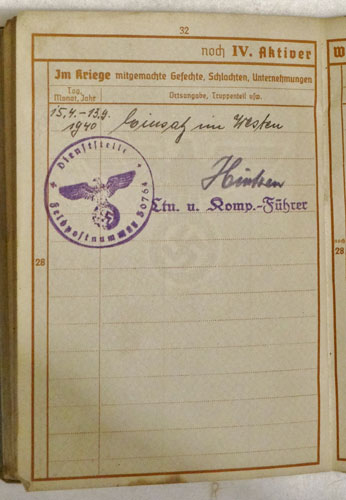 32
noch IV. Aktiver
Im Kriege mitgemachte Gefechte, Schlachten, Unternehmungen
Tag, Monat, Jahr
Ortsangabe, Truppenteil usw.
15.4. - 13.9. 1940 Einsatz im Westen
Dienststelle
Feldpostnummer 30764
Ltn. u. Komp.-Führer
28
W
noch
28